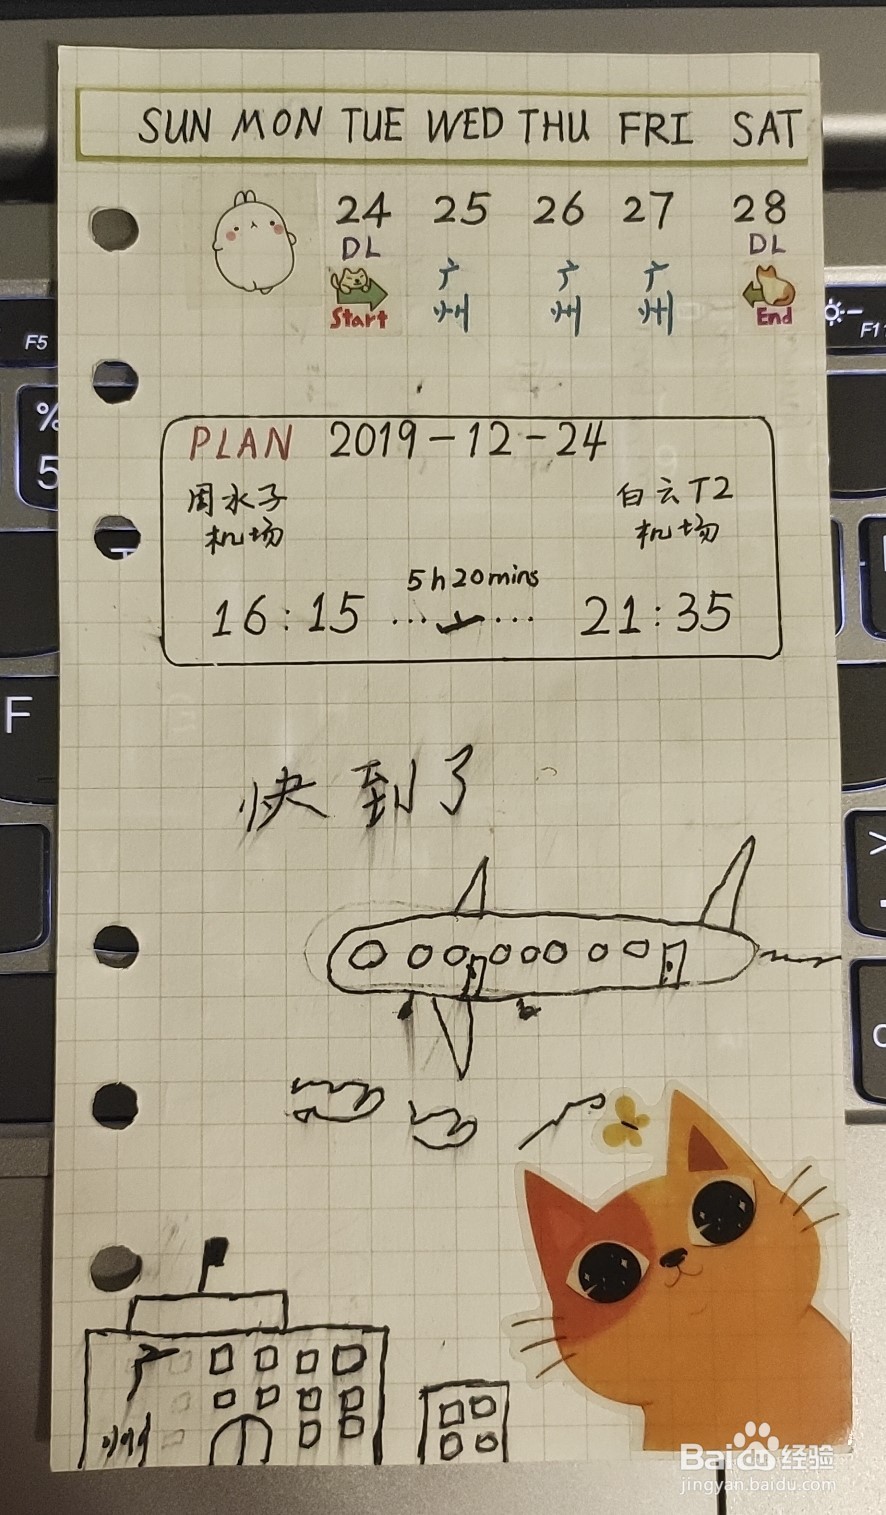 SUN MON TUE WED THU FRI SAT
24 25 26 27 28
DL DL
广州 广州 广州
Start End
PLAN 2019-12-24
周水子 白云T2
机场 机场
5h20mins
16:15 ... ... 21:35
快到了
广
州
F5
F11
%
5
F
>
Baidu经验
jingyan.baidu.com